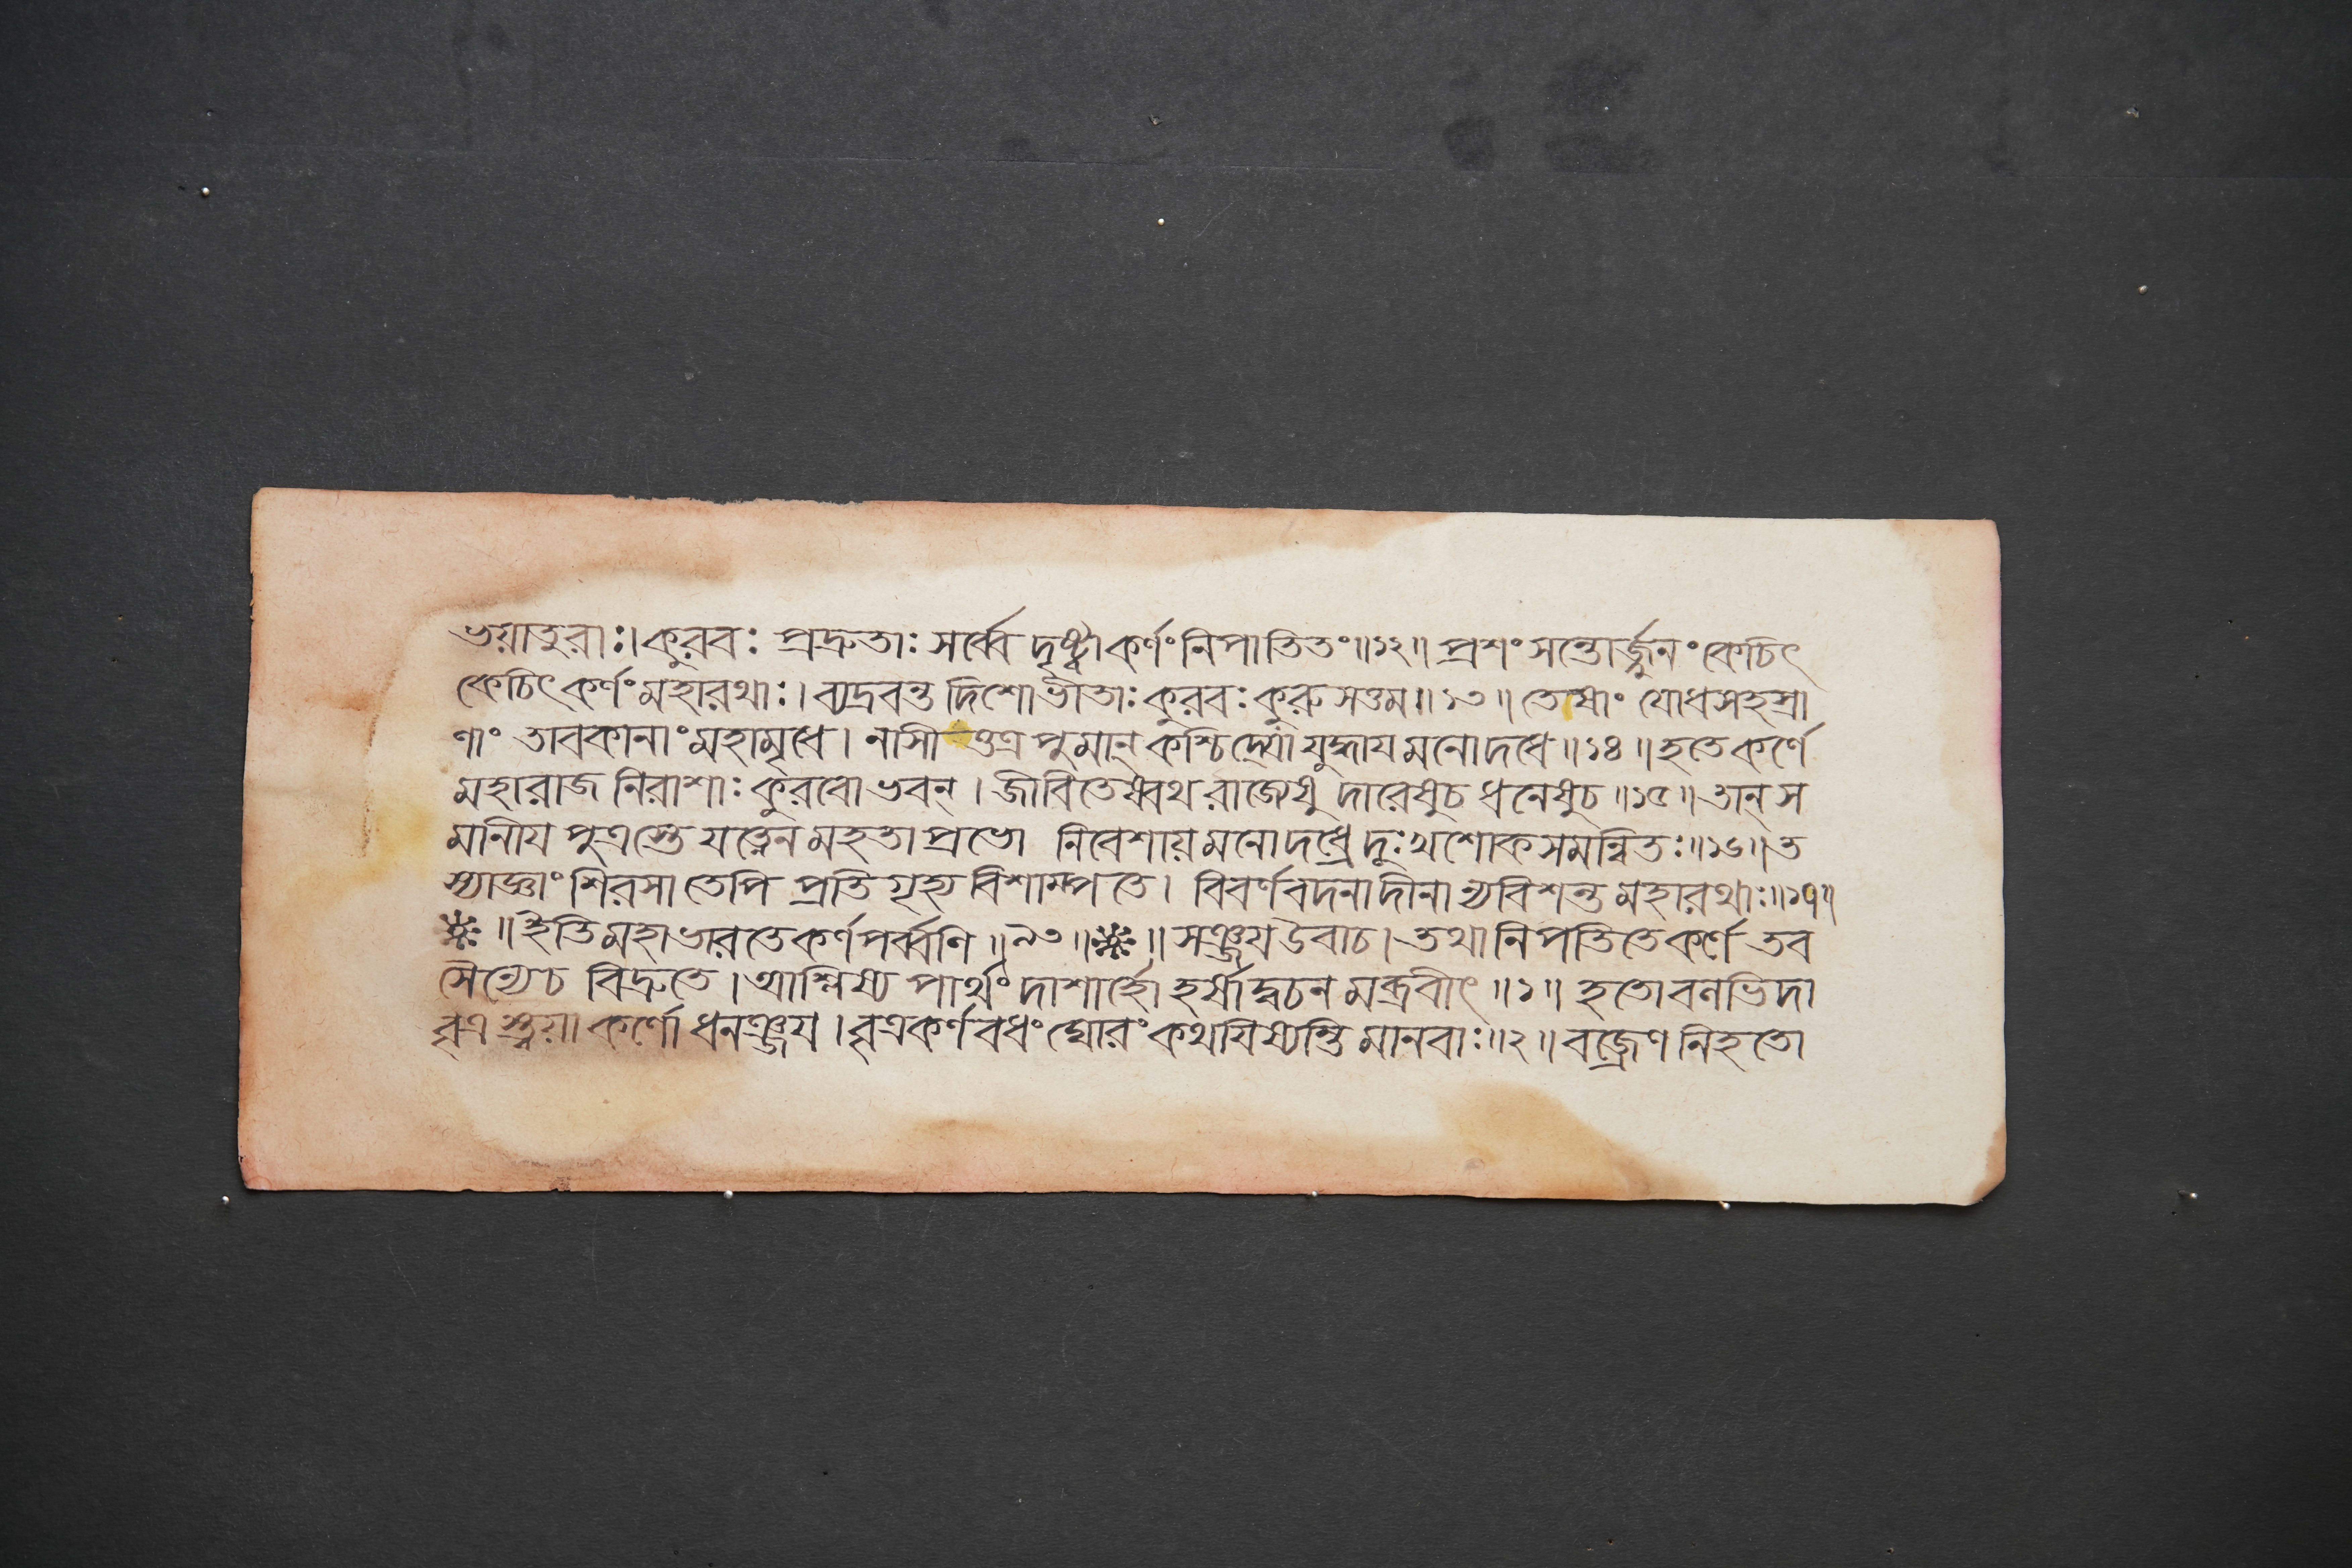 ভয়াতুরাঃ। কুরবঃ প্রদ্রুতাঃ সর্ব্বে দৃষ্ট্বা কর্ণং নিপাতিতং॥১২॥ প্রশংসন্তোর্জ্জুনং কেচিৎ
কেচিৎ কর্ণং মহারথাঃ। ব্যদ্রবন্ত দিশো ভীতাঃ কুরবঃ কুরুসত্তম॥১৩॥ তেষাং যোধসহস্রা
ণাং তাবকানাং মহামৃধে। নাসী ত্তত্র পুমান্ কশ্চিদ্যো যুদ্ধায় মনোদধে॥১৪॥ হতে কর্ণে
মহারাজ নিরাশাঃ কুরবোভবন্। জীবিতেষ্বথ রাজ্যেষু দারেষুচ ধনেষুচ॥১৫॥ তান্ স
মানীয পুত্রস্তে যত্নেন মহতা প্রভো নিবেশায় মনোদধ্রে দুঃখশোকসমন্বিতঃ॥১৬॥ ত
স্যাজ্ঞাং শিরসা তেপি প্রতিগৃহ্য বিশাম্পতে। বিবর্ণবদনাদীনা ন্যবিশন্ত মহারথাঃ॥১৭॥
॥ইতি মহাভারতে কর্ণপর্ব্বণি॥৯৩॥ ॥ সঞ্জয উবাচ। তথা নিপতিতে কর্ণে তব
সৈন্যেচ বিদ্রুতে। আশ্লিষ্য পার্থং দাশার্হো হর্ষাদ্বচন মব্রবীৎ॥১॥ হতো বলভিদা
বৃত্র স্ত্বয়া কর্ণো ধনঞ্জয। বৃত্রকর্ণবধং ঘোরং কথযিষ্যন্তি মানবাঃ॥২॥ বজ্রেণ নিহতো